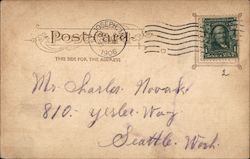 Post Card
JOSEPH
1906
THIS SIDE FOR THE ADDRESS
2
Mr. Charles Novak
810 - Yesler Way
Seattle. Wash.